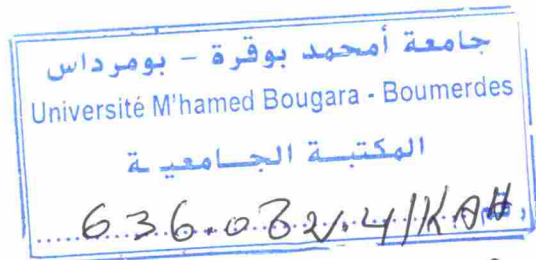 جامعة أمحمد بوقرة - بومرداس
Université M'hamed Bougara - Boumerdes
المكتبة الجامعية
رقم 636.082.4/KAH